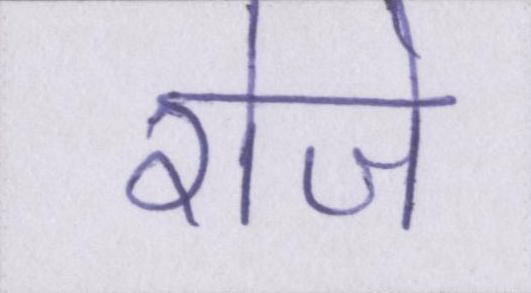 रोजे